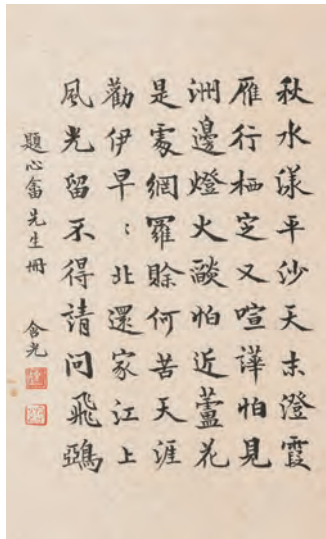 秋水漾平沙天末澄霞
雁行栖定又喧譁怕見
洲邊燈火燄怕近蘆花
是處網羅賒何苦天涯
勸伊早〻北還家江上
風光留不得請問飛鵶
題心畬先生冊 含光